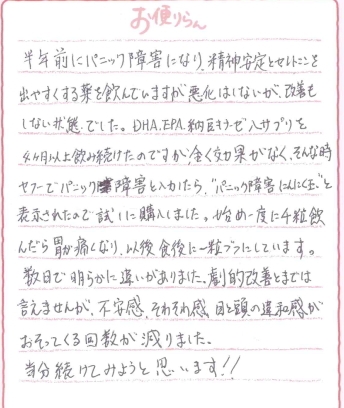 お便りらん
半年前にパニック障害になり、精神安定とセロトニンを
出やすくする薬を飲んでいますが悪化はしないが、改善も
しない状態でした。DHA、EPA、納豆キナーゼ入サプリを
4ヶ月以上飲み続けたのですが、全く効果がなく、そんな時
ヤフーでパニック障害と入力したら、"パニック障害にんにく玉"と
表示されたので試しに購入しました。始め一度に4粒飲
んだら胃が痛くなり、以後食後に一粒づつにしています。
数日で明らかに違いがありました。劇的改善とまでは
言えませんが、不安感、そわそわ感、目と頭の違和感が
おそってくる回数が減りました。
当分続けてみようと思います!!